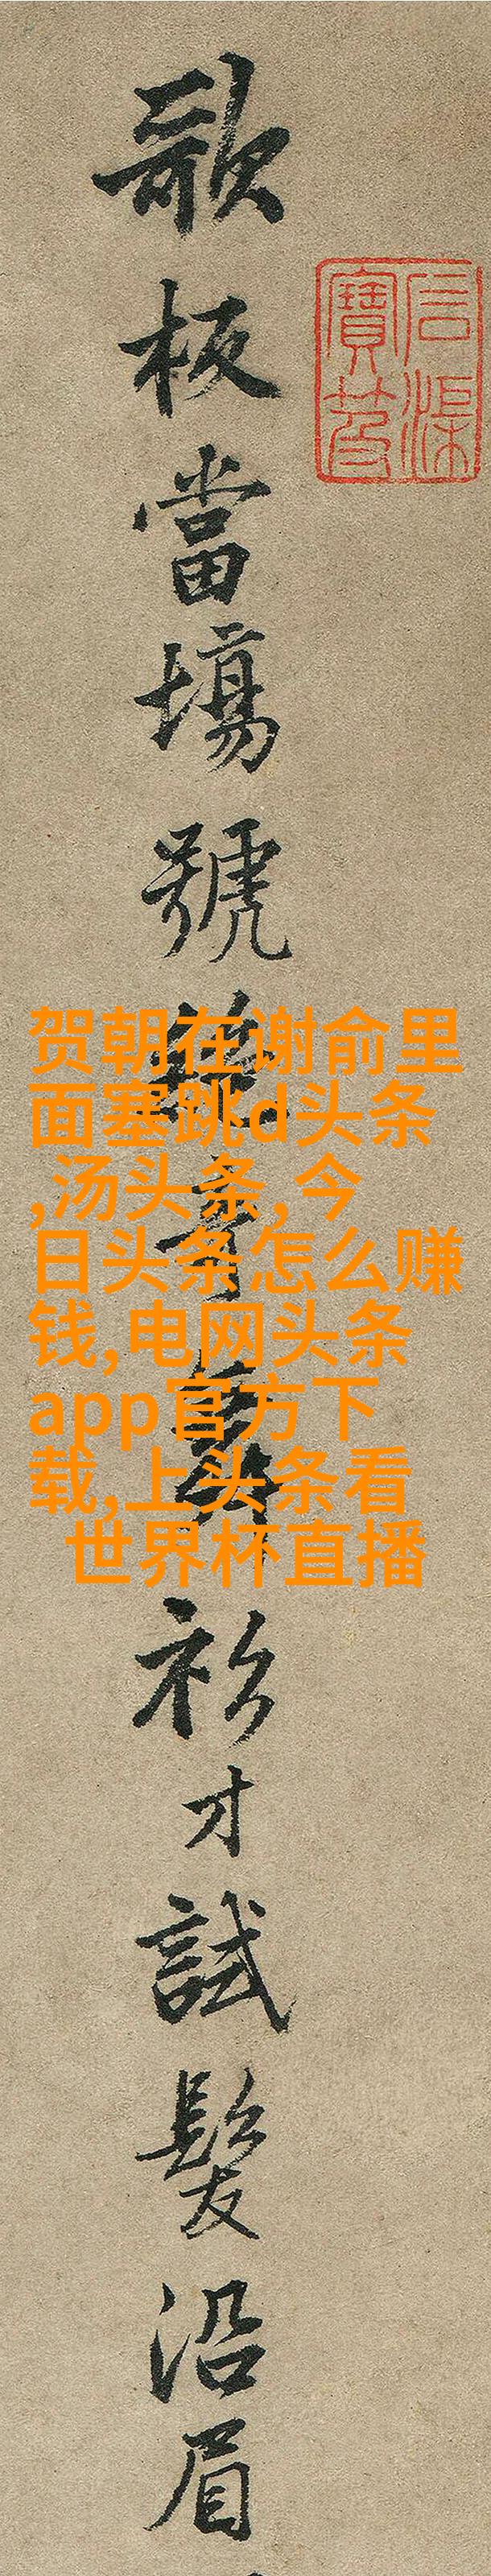 石渠
寶笈
歌板當場號絕奇舞衫才試髮沿眉
贺朝在谢俞里
面塞跳d头条
,汤头条,今
日头条怎么赚
钱,电网头条
app官方下
载,上头条看
世界杯直播